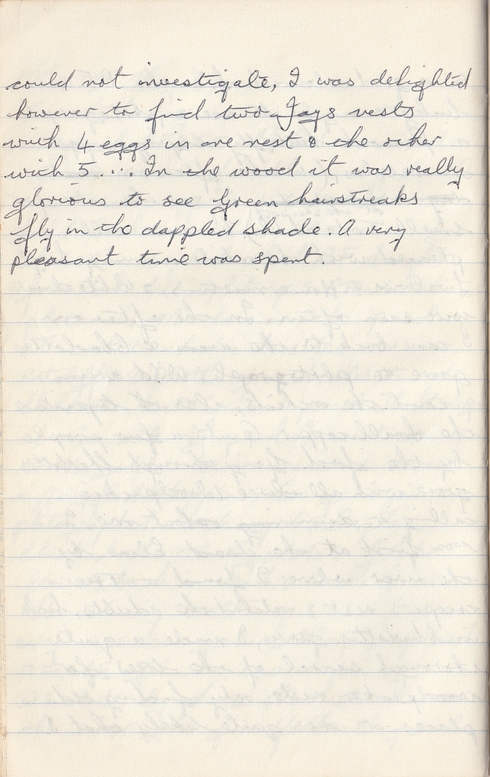 could not investigate, I was delighted
however to find two Jays nests
with 4 eggs in one nest & the other
with 5.... In the wood it was really
glorious to see Green hairstreaks
fly in the dappled shade. A very
pleasant time was spent.